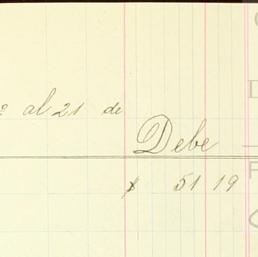 al 21 de
Debe
$ 51 19